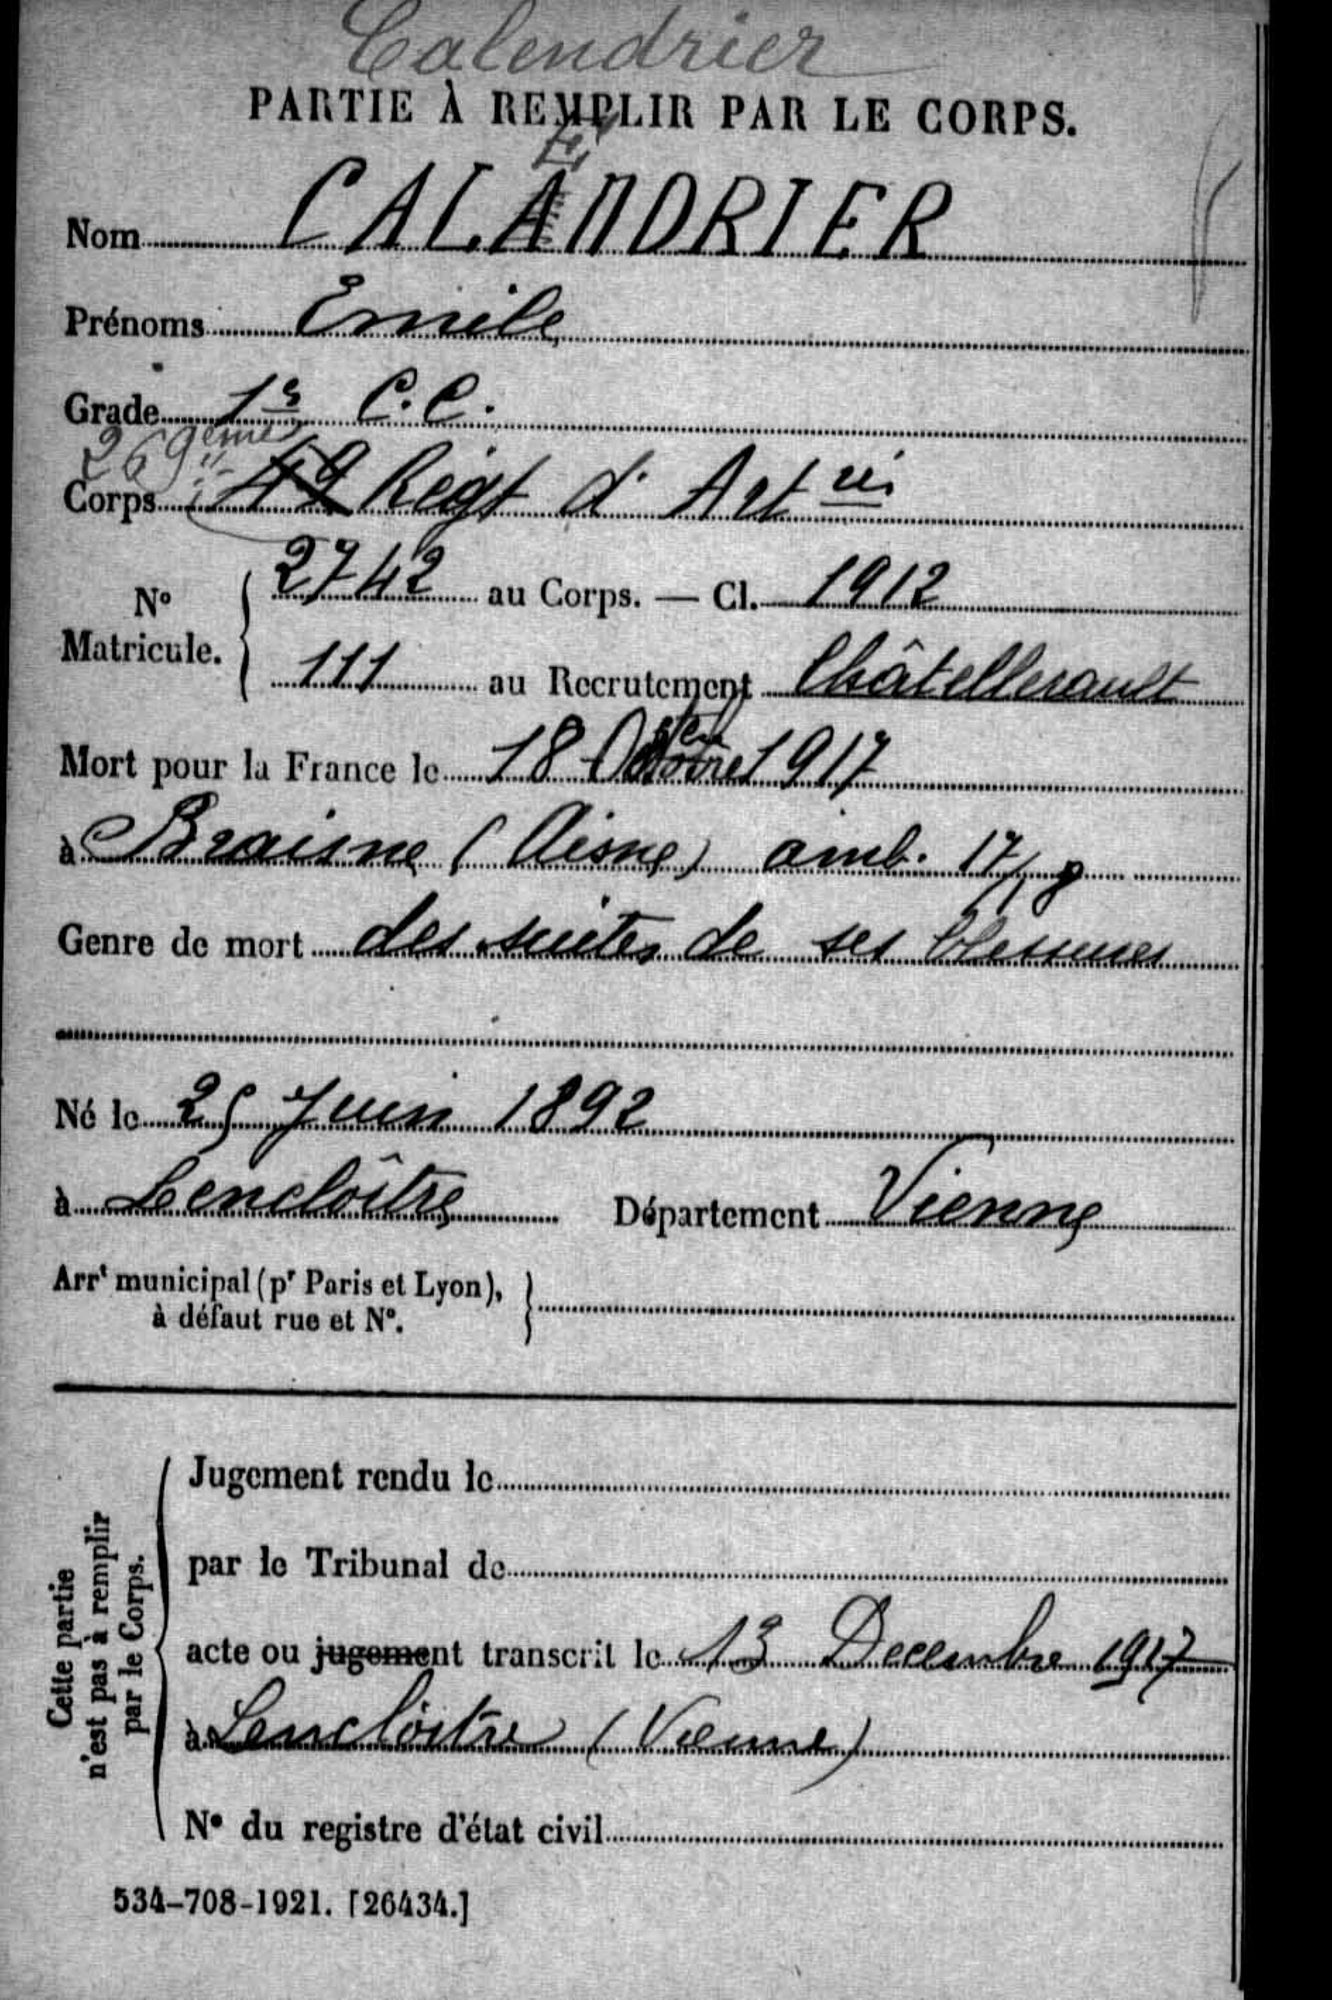 Calendrier
PARTIE À REMPLIR PAR LE CORPS.
E
Nom CALANDRIER
Prénoms Emile
Grade 1er C.C.
269ème
Corps 49 Régt d'Artrie
No Matricule. { 2742 au Corps. — Cl. 1912
111 au Recrutement Châtellerault
Mort pour la France le 18 Octobre 1917
à Braisne (Aisne) amb. 17/8
Genre de mort des suites de ses blessures
Né le 25 Juin 1892
à Lencloître Département Vienne
Arrt municipal (pr Paris et Lyon), à défaut rue et No.
Cette partie n'est pas à remplir par le Corps.
Jugement rendu le
par le Tribunal de
acte ou jugement transcrit le 13 Decembre 1917
à Lencloître (Vienne)
No du registre d'état civil
534-708-1921. [26434.]